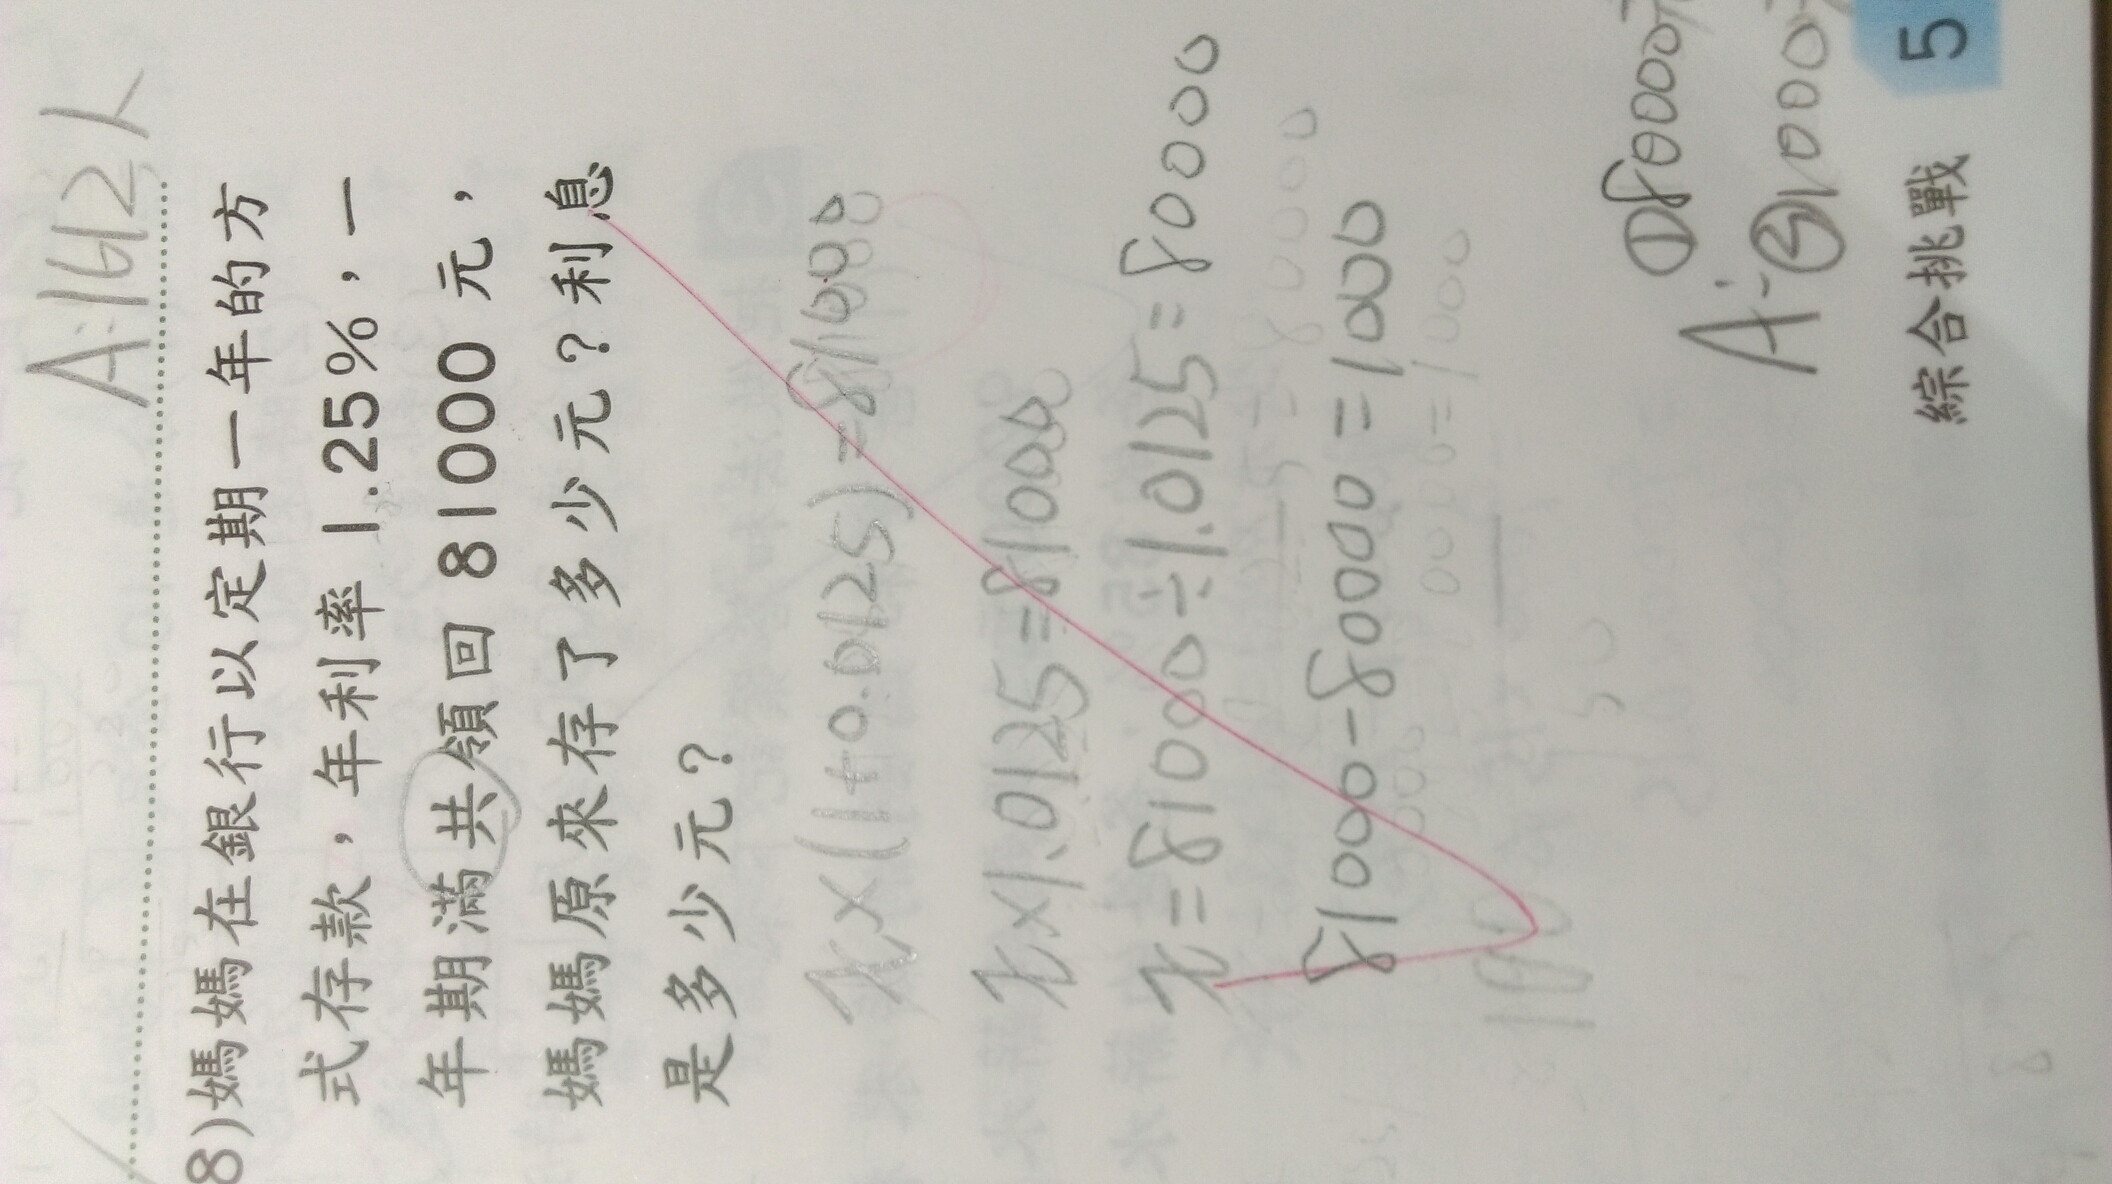 A:162人
8)媽媽在銀行以定期一年的方
式存款，年利率 1.25%，一
年期滿共領回 81000 元，
媽媽原來存了多少元？利息
是多少元？
x×(1+0.0125)=81000
x×1.0125=81000
x=81000÷1.0125=80000
81000-80000=1000
①80000元
A:②1000元
綜合挑戰 5